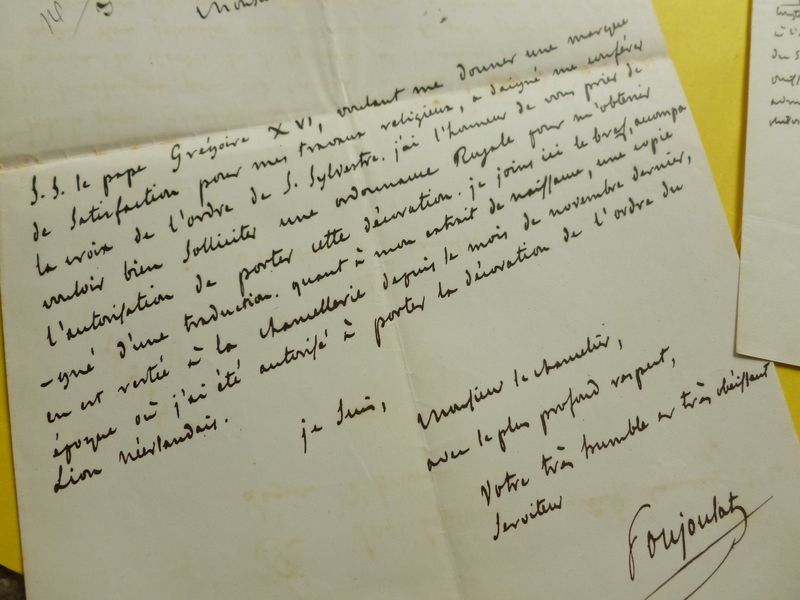 S. S. le pape Grégoire XVI, voulant me donner une marque
de Satisfaction pour mes travaux religieux, a daigné me conférer
la croix de l'ordre de S. Sylvestre. j'ai l'honneur de vous prier de
vouloir bien Solliciter une ordonnance Royale pour m'obtenir
l'autorisation de porter cette décoration. je joins ici le bref, accompa
-gné d'une traduction. quant à mon extrait de naissance, une copie
en est restée à la chancellerie depuis le mois de novembre dernier,
époque où j'ai été autorisé à porter la décoration de l'ordre du
Lion néerlandais.
je suis,
Monsieur le chancelier,
avec le plus profond respect,
Votre très humble et très obéissant
Serviteur
Poujoulat